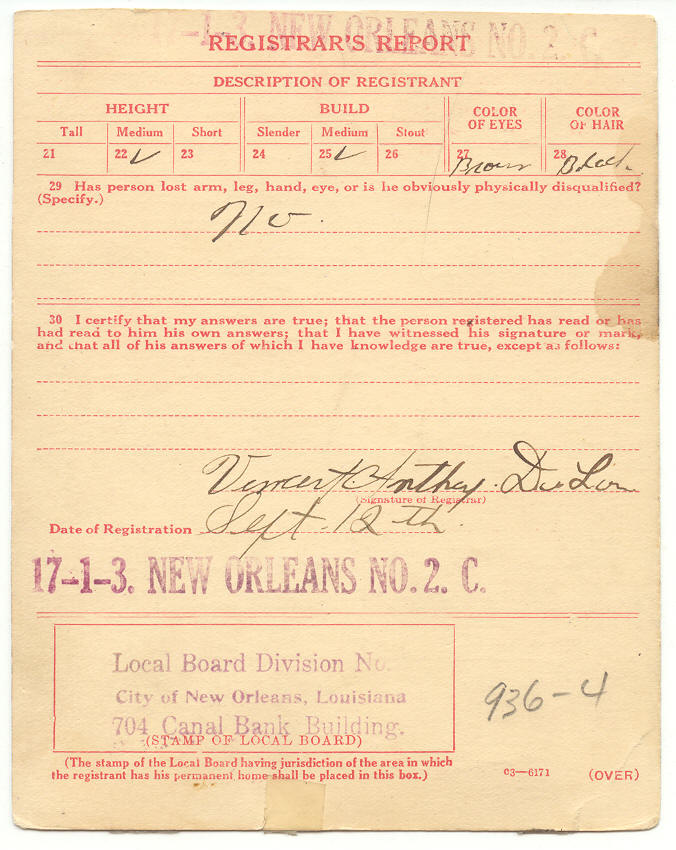 17-1-3. NEW ORLEANS NO. 2. C.
REGISTRAR'S REPORT
DESCRIPTION OF REGISTRANT
HEIGHT BUILD COLOR OF EYES COLOR OF HAIR
Tall Medium Short Slender Medium Stout
21 22 ✓ 23 24 25 ✓ 26 27 Brown 28 Black
29 Has person lost arm, leg, hand, eye, or is he obviously physically disqualified?
(Specify.)
No.
30 I certify that my answers are true; that the person registered has read or has
had read to him his own answers; that I have witnessed his signature or mark,
and that all of his answers of which I have knowledge are true, except as follows:
Vincent Anthony
(Signature of Registrar)
Date of Registration Sept. 12th.
17-1-3. NEW ORLEANS NO. 2. C.
Local Board Division No.
City of New Orleans, Louisiana
704 Canal Bank Building.
(STAMP OF LOCAL BOARD)
936-4
(The stamp of the Local Board having jurisdiction of the area in which
the registrant has his permanent home shall be placed in this box.)
03—6171 (OVER)